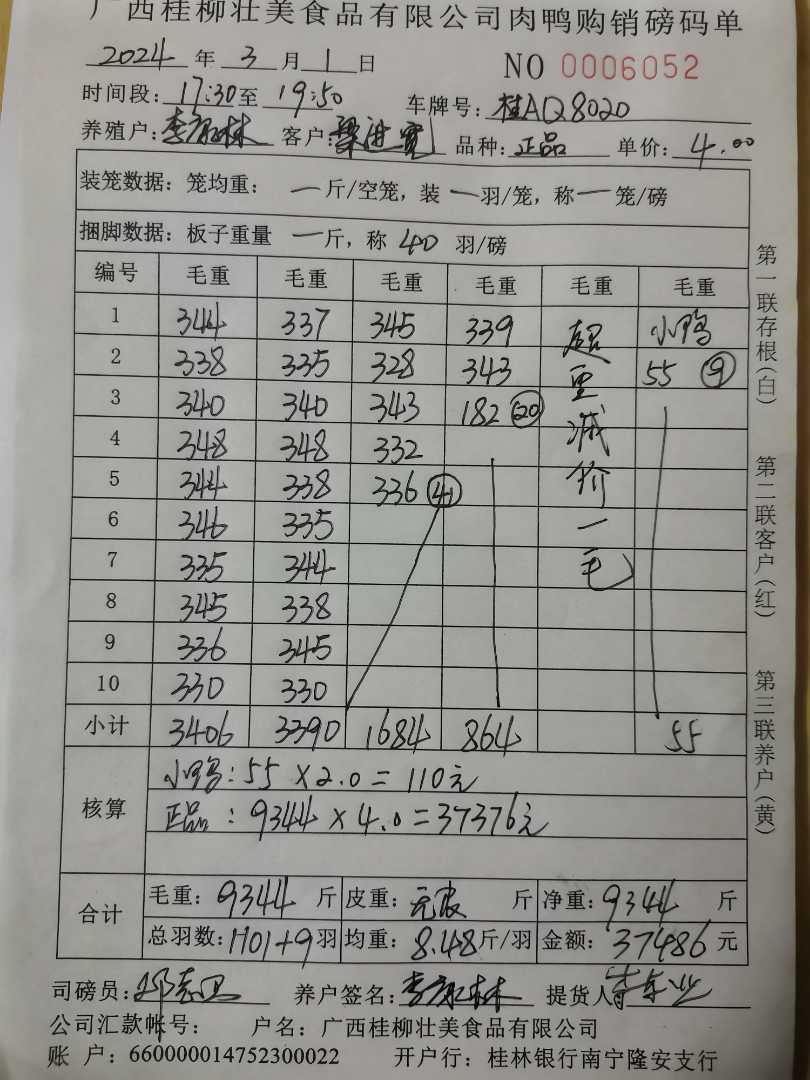 广西桂柳壮美食品有限公司肉鸭购销磅码单
2024 年 3 月 1 日 NO 0006052
时间段: 17:30 至 19:50 车牌号: 桂AQ8020
养殖户: 李 林 客户: 梁进宽 品种: 正品 单价: 4.00
装笼数据: 笼均重: 一 斤/空笼, 装 一 羽/笼, 称 一 笼/磅
捆脚数据: 板子重量 一 斤, 称 40 羽/磅
编号 毛重 毛重 毛重 毛重 毛重 毛重
1 344 337 345 339 超 小鸭
2 338 335 328 343 重 55 ⑨
3 340 340 343 182 ⑳ 减
4 348 348 332 价
5 344 338 336 ㊶ 一
6 346 335 毛
7 335 344
8 345 338
9 336 345
10 330 330
小计 3406 3390 1684 864 55
核算
小鸭: 55 × 2.0 = 110元
正品: 9344 × 4.0 = 37376元
合计
毛重: 9344 斤 皮重: 无皮 斤 净重: 9344 斤
总羽数: 1101+9 羽 均重: 8.48 斤/羽 金额: 37486 元
司磅员: 养户签名: 李 林 提货人
公司汇款帐号: 户名: 广西桂柳壮美食品有限公司
账 户: 660000014752300022 开户行: 桂林银行南宁隆安支行
第一联存根(白)
第二联客户(红)
第三联养户(黄)